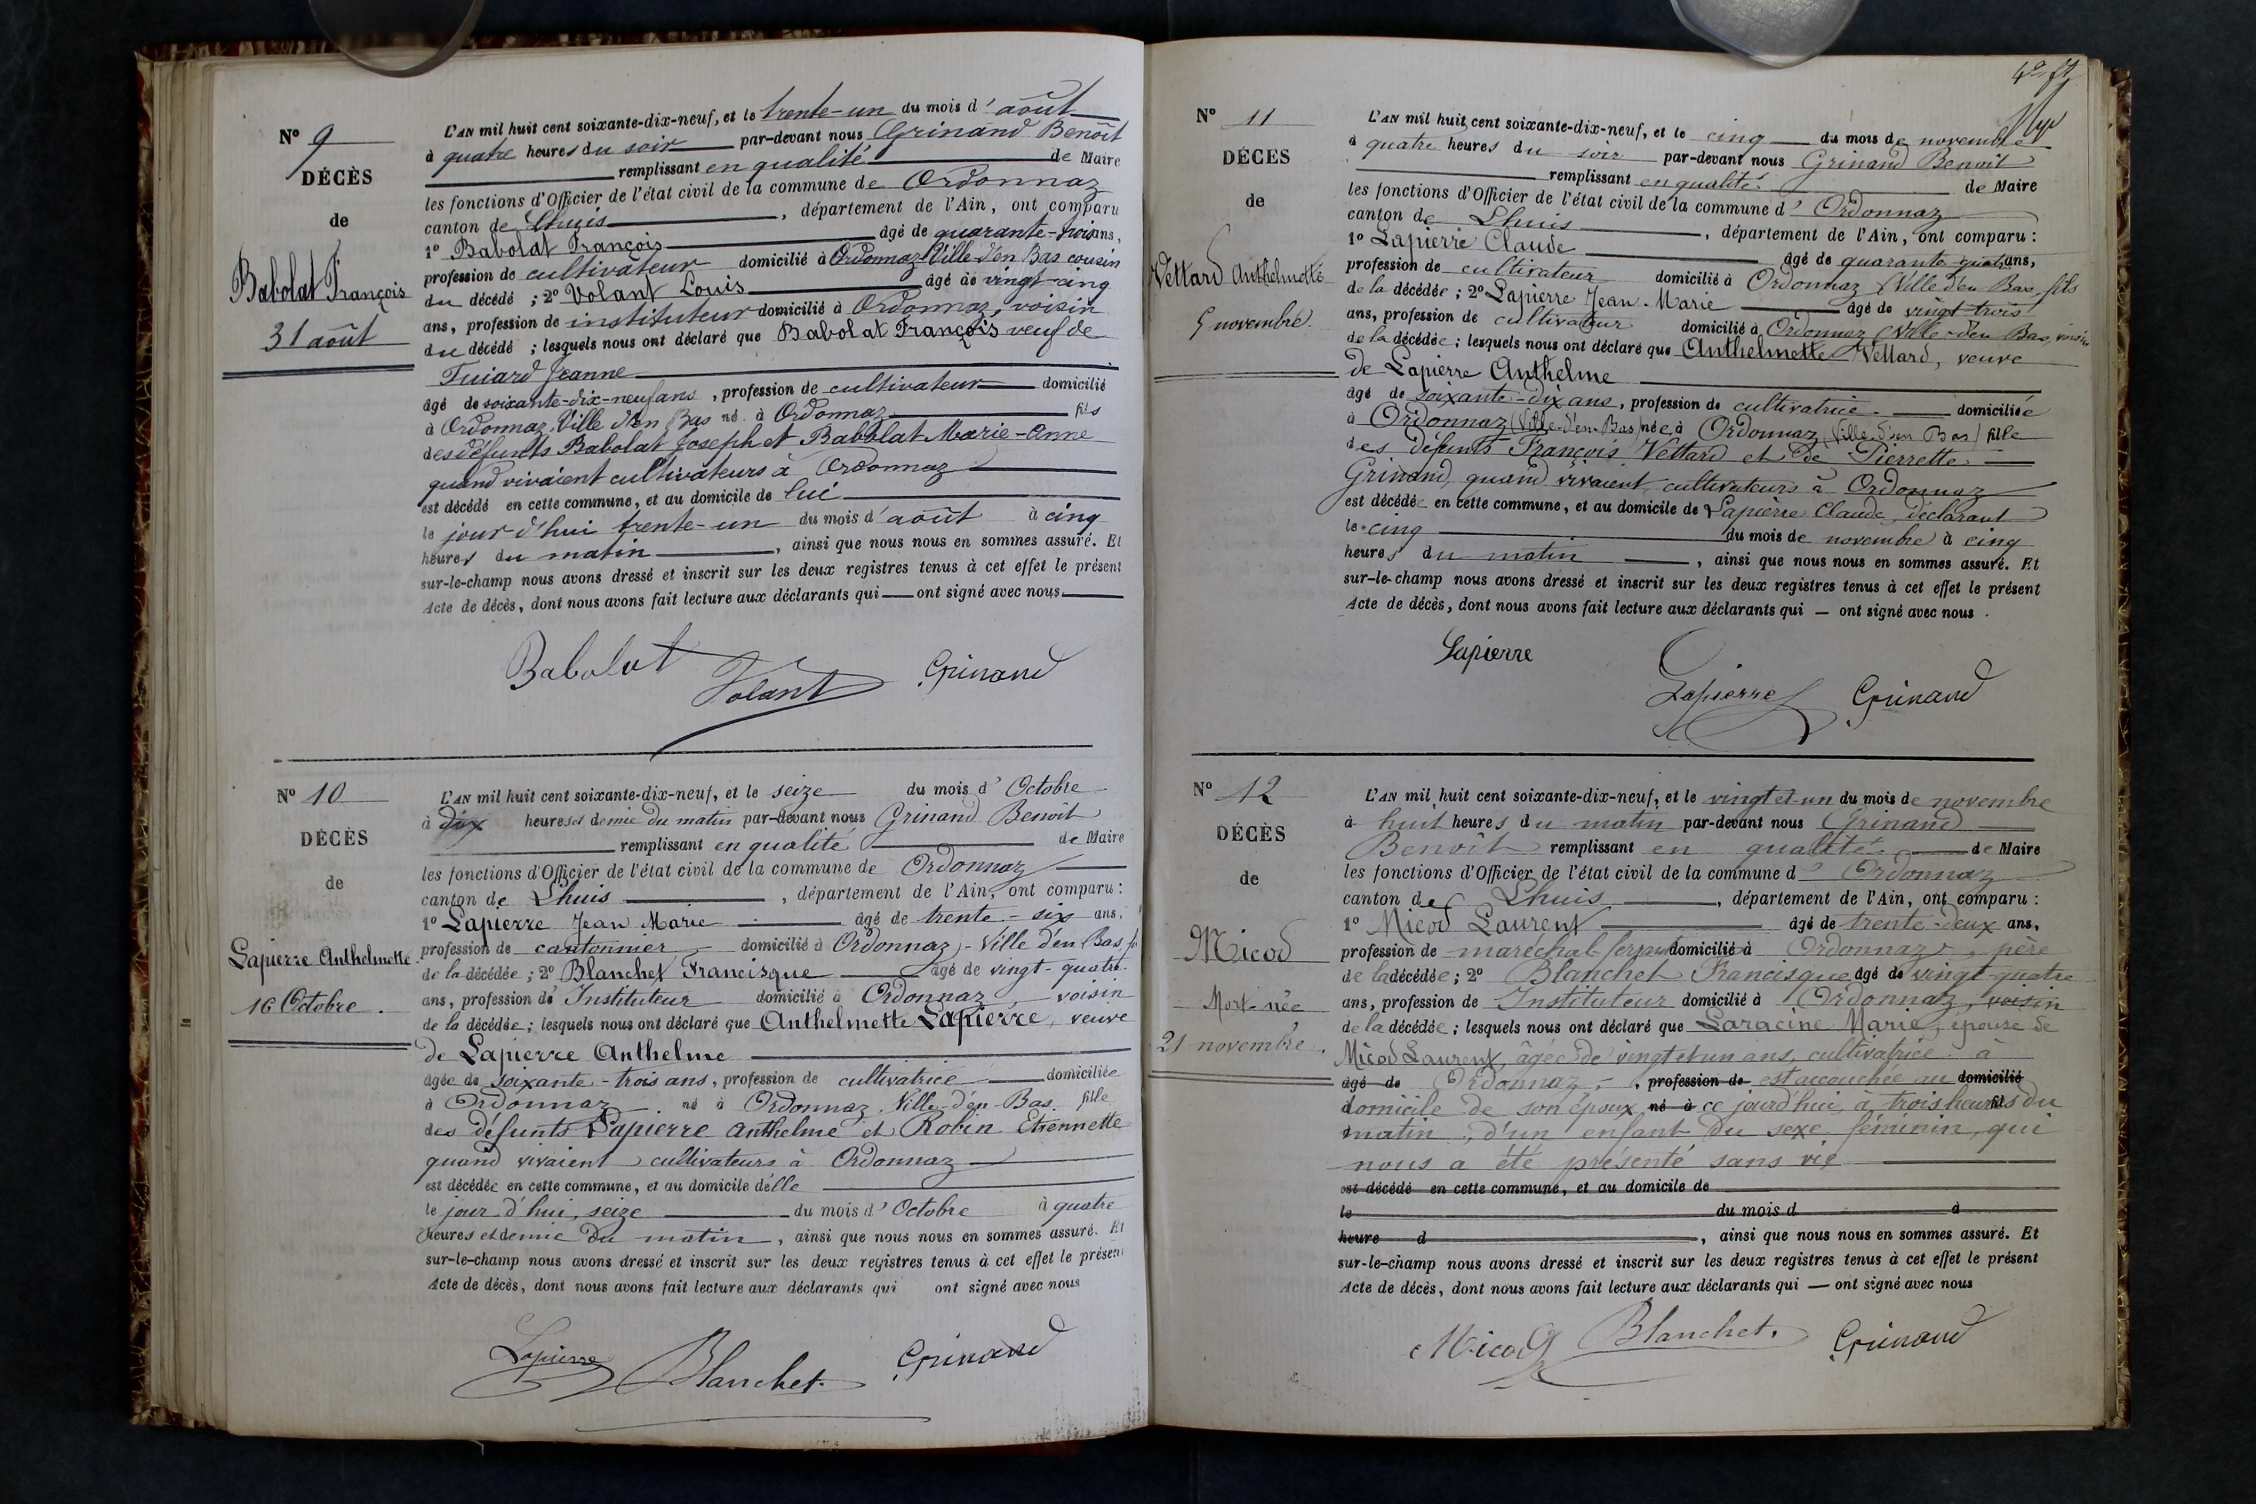 Nº 9
DÉCÈS
de
Babolat François
31 août
L'AN mil huit cent soixante-dix-neuf, et le trente-un du mois d' août
à quatre heures du soir par-devant nous Grinand Benoît
remplissant en qualité de Maire
les fonctions d'Officier de l'état civil de la commune de Ordonnaz
canton de Lhuis, département de l'Ain, ont comparu
1º Babolat François âgé de quarante-trois ans,
profession de cultivateur domicilié à Ordonnaz Ville d'en Bas cousin
du décédé ; 2º Volant Louis âgé de vingt-cinq
ans, profession de instituteur domicilié à Ordonnaz, voisin
du décédé ; lesquels nous ont déclaré que Babolat François veuf de
Tuiard Jeanne
âgé de soixante-dix-neuf ans, profession de cultivateur domicilié
à Ordonnaz, Ville d'en Bas né à Ordonnaz fils
des défunts Babolat Joseph et Babolat Marie-Anne
quand vivaient cultivateurs à Ordonnaz
est décédé en cette commune, et au domicile de lui
le jour d'hui trente-un du mois d'août à cinq
heures du matin, ainsi que nous nous en sommes assuré. Et
sur-le-champ nous avons dressé et inscrit sur les deux registres tenus à cet effet le présent
Acte de décès, dont nous avons fait lecture aux déclarants qui ont signé avec nous
Babolat Volant Grinand
Nº 10
DÉCÈS
de
Lapierre Anthelmette
16 Octobre.
L'AN mil huit cent soixante-dix-neuf, et le seize du mois d' Octobre
à dix heures et demie du matin par-devant nous Grinand Benoît
remplissant en qualité de Maire
les fonctions d'Officier de l'état civil de la commune de Ordonnaz
canton de Lhuis, département de l'Ain, ont comparu :
1º Lapierre Jean Marie âgé de trente-six ans,
profession de cantonnier domicilié à Ordonnaz - Ville d'en Bas,
de la décédée ; 2º Blanchet Francisque âgé de vingt-quatre
ans, profession de Instituteur domicilié à Ordonnaz voisin
de la décédée ; lesquels nous ont déclaré que Anthelmette Lapierre, veuve
de Lapierre Anthelme
âgée de soixante-trois ans, profession de cultivatrice domiciliée
à Ordonnaz. né à Ordonnaz, Ville d'en Bas. fille
des défunts Lapierre Anthelme et Robin Etiennette
quand vivaient cultivateurs à Ordonnaz
est décédée en cette commune, et au domicile d'elle
le jour d'hui, seize du mois d' Octobre à quatre
heures et demie du matin, ainsi que nous nous en sommes assuré. Et
sur-le-champ nous avons dressé et inscrit sur les deux registres tenus à cet effet le présent
Acte de décès, dont nous avons fait lecture aux déclarants qui ont signé avec nous
Lapierre Blanchet. Grinand
Nº 11
DÉCES
de
Vettard Anthelmette
5 novembre.
L'AN mil huit cent soixante-dix-neuf, et le cinq du mois de novembre
à quatre heures du soir par-devant nous Grinand Benoît
remplissant en qualité de Maire
les fonctions d'Officier de l'état civil de la commune d' Ordonnaz
canton de Lhuis, département de l'Ain, ont comparu :
1º Lapierre Claude âgé de quarante quatre ans,
profession de cultivateur domicilié à Ordonnaz (Ville d'en Bas, fils
de la décédée ; 2º Lapierre Jean-Marie âgé de vingt-trois
ans, profession de cultivateur domicilié à Ordonnaz (Ville-d'en Bas, voisin
de la décédée ; lesquels nous ont déclaré que Anthelmette Vettard, veuve
de Lapierre Anthelme
âgé de soixante-dix ans, profession de cultivatrice domiciliée
à Ordonnaz (Ville-d'en-Bas) née à Ordonnaz (Ville d'en Bas) fille
des défunts François Vettard et de Pierrette
Grinand, quand vivaient cultivateurs à Ordonnaz
est décédée en cette commune, et au domicile de Lapierre Claude, déclarant
le cinq du mois de novembre à cinq
heures du matin, ainsi que nous nous en sommes assuré. Et
sur-le-champ nous avons dressé et inscrit sur les deux registres tenus à cet effet le présent
Acte de décès, dont nous avons fait lecture aux déclarants qui — ont signé avec nous.
Lapierre Lapierre Grinand
Nº 12
DÉCÈS
de
Micod
Mort-née
21 novembre.
L'AN mil huit cent soixante-dix-neuf, et le vingt et un du mois de novembre
à huit heures du matin par-devant nous Grinand
Benoît remplissant en qualité de Maire
les fonctions d'Officier de l'état civil de la commune d' Ordonnaz
canton de Lhuis, département de l'Ain, ont comparu :
1º Micod Laurent âgé de trente-deux ans,
profession de maréchal ferrant domicilié à Ordonnaz, père
de la décédée ; 2º Blanchet Francisque âgé de vingt-quatre
ans, profession de Instituteur domicilié à Ordonnaz, voisin
de la décédée ; lesquels nous ont déclaré que Laracine Marie, épouse de
Micod Laurent, âgée de vingt et un ans, cultivatrice à
âgé de Ordonnaz, profession de est accouchée au domicilié
domicile de son époux né à ce jourd'hui, à trois heures du
matin, d'un enfant du sexe féminin, qui
nous a été présenté sans vie
est décédé en cette commune, et au domicile de
le du mois d à
heure d, ainsi que nous nous en sommes assuré. Et
sur-le-champ nous avons dressé et inscrit sur les deux registres tenus à cet effet le présent
Acte de décès, dont nous avons fait lecture aux déclarants qui — ont signé avec nous
Micod Blanchet. Grinand